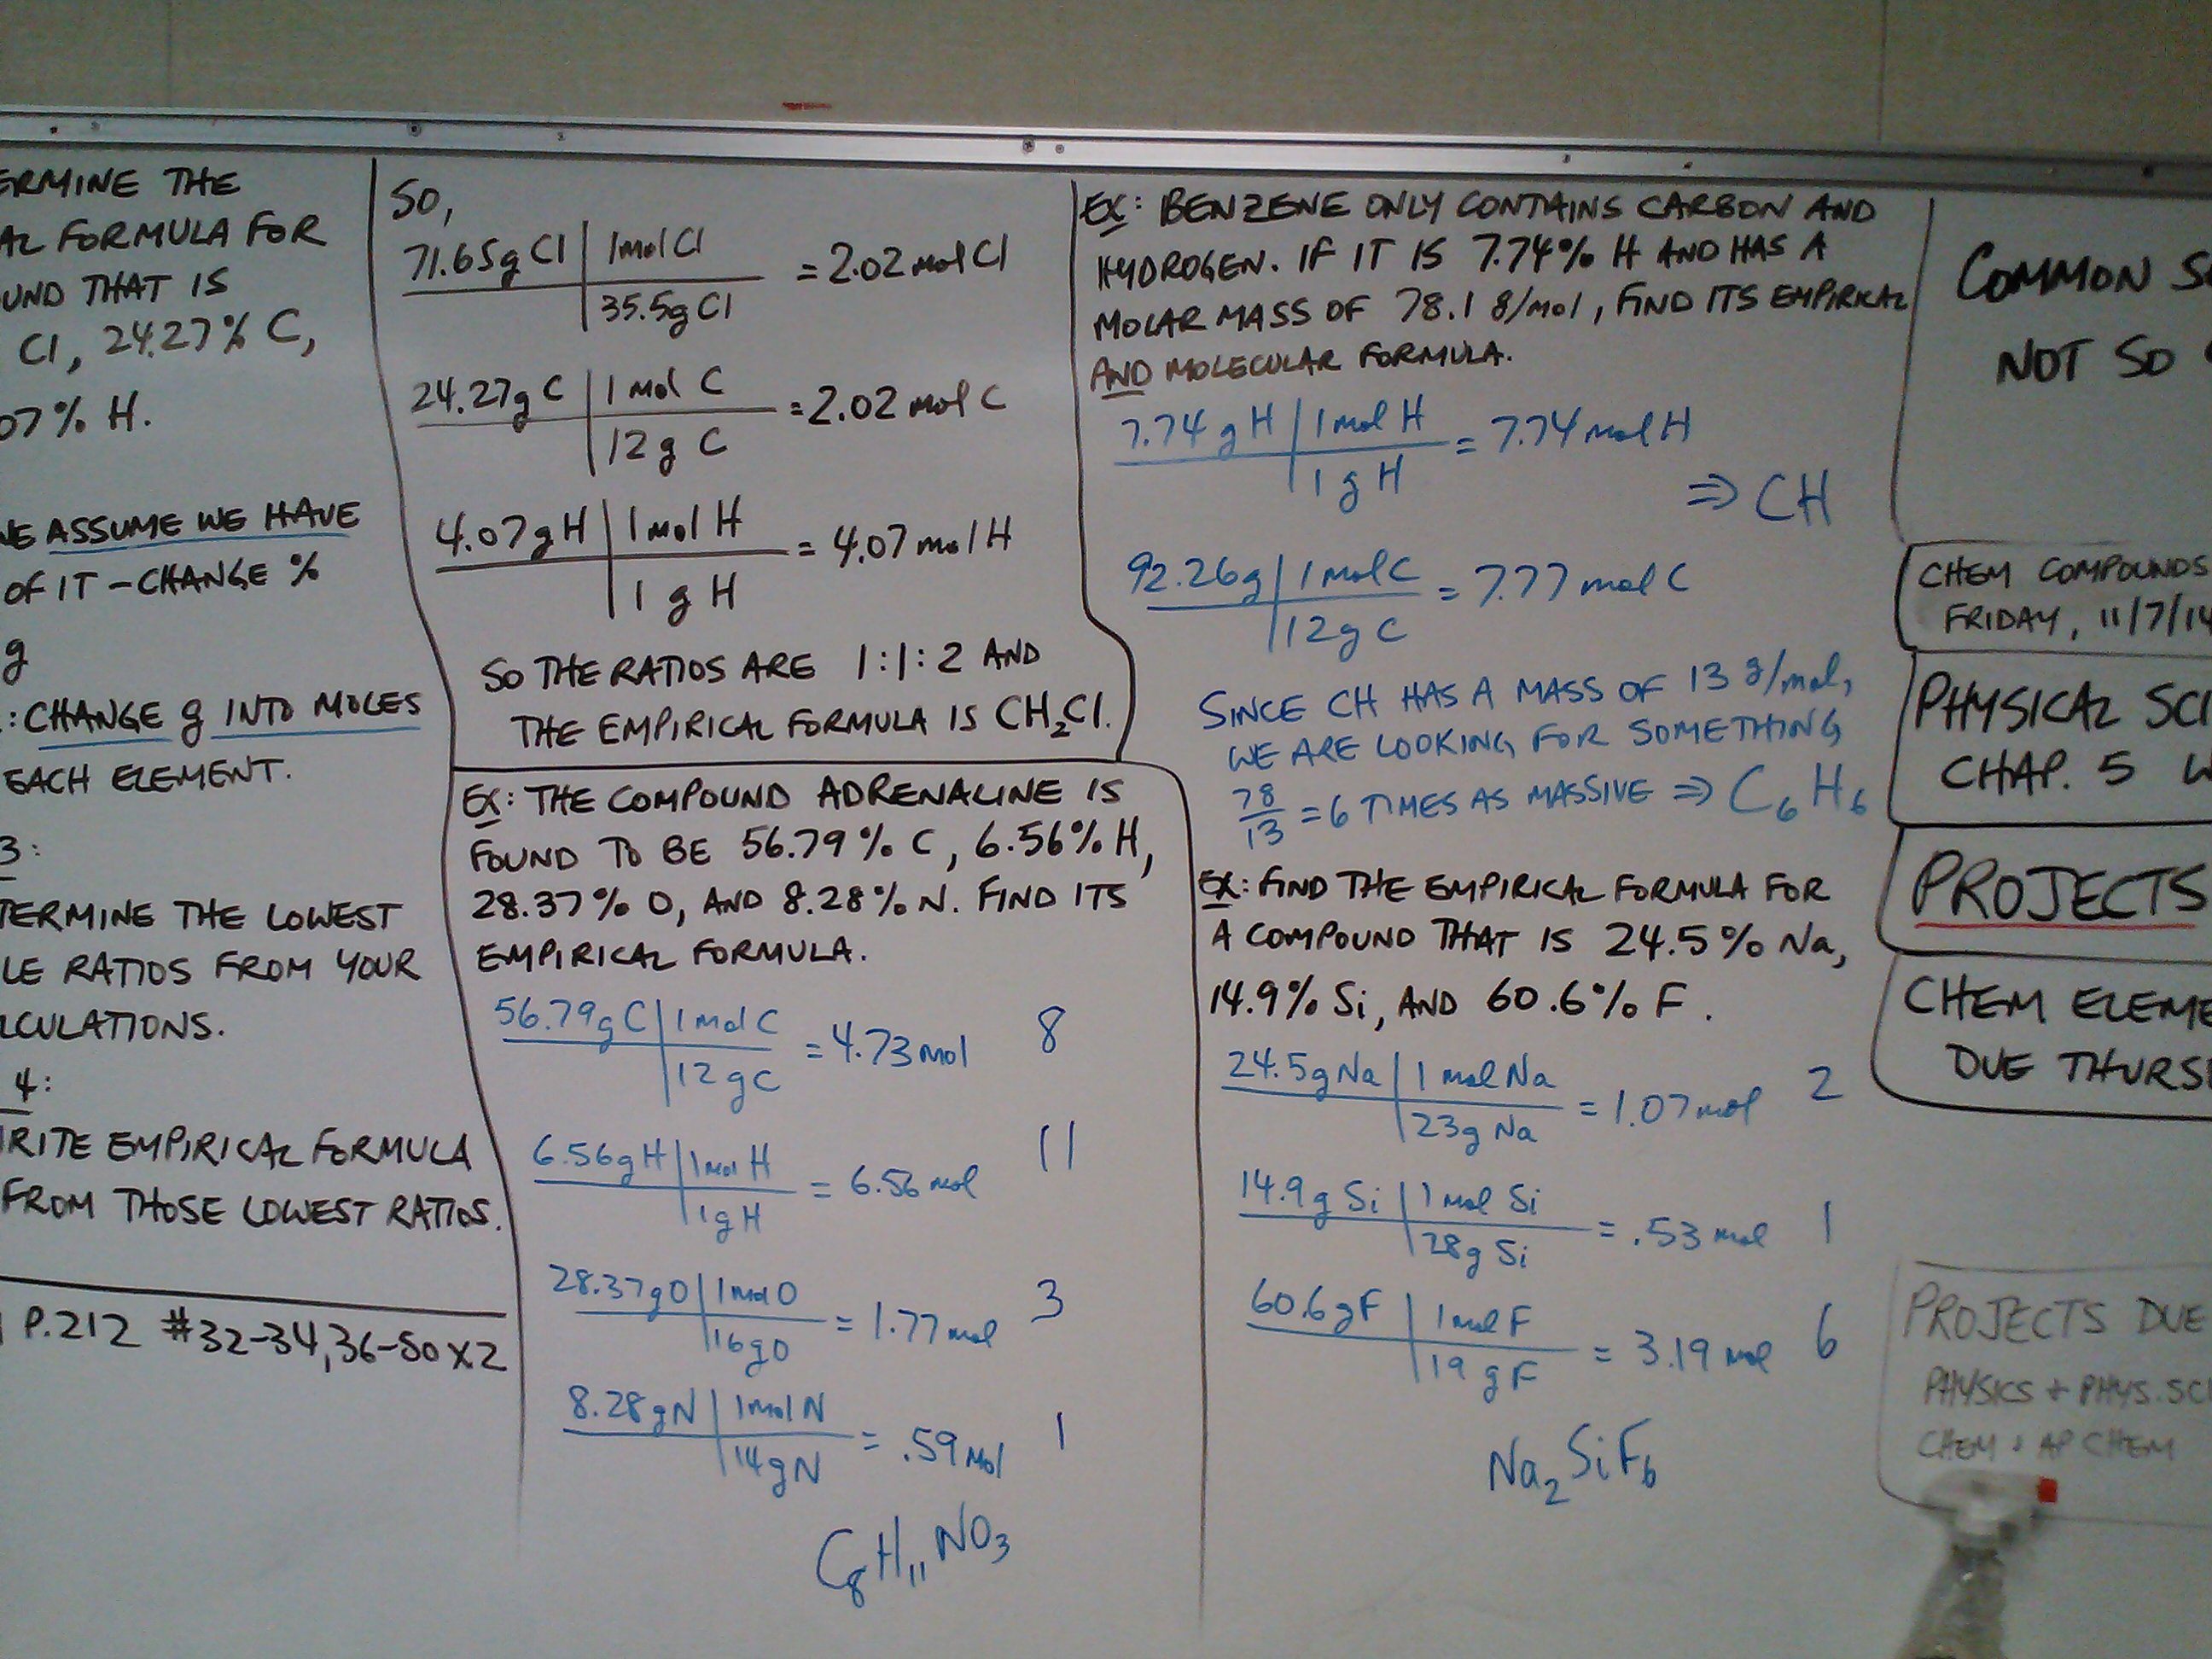 ERMINE THE
AL FORMULA FOR
UND THAT IS
Cl, 24.27% C,
07% H.
WE ASSUME WE HAVE
OF IT – CHANGE %
g
: CHANGE g INTO MOLES
EACH ELEMENT.
3:
TERMINE THE LOWEST
LE RATIOS FROM YOUR
LCULATIONS.
4:
RITE EMPIRICAL FORMULA
FROM THOSE LOWEST RATIOS.
P.212 #32-34, 36-50 x2
SO,
71.65g Cl | 1 mol Cl
35.5g Cl
= 2.02 mol Cl
24.27g C | 1 mol C
12 g C
= 2.02 mol C
4.07g H | 1 mol H
1 g H
= 4.07 mol H
SO THE RATIOS ARE 1:1:2 AND
THE EMPIRICAL FORMULA IS CH₂Cl.
EX: THE COMPOUND ADRENALINE IS
FOUND TO BE 56.79% C, 6.56% H,
28.37% O, AND 8.28% N. FIND ITS
EMPIRICAL FORMULA.
56.79g C | 1 mol C
12 g C
= 4.73 mol 8
6.56g H | 1 mol H
1g H
= 6.56 mol 11
28.37g O | 1 mol O
16g O
= 1.77 mol 3
8.28g N | 1 mol N
14g N
= .59 mol 1
C₈H₁₁NO₃
EX: BENZENE ONLY CONTAINS CARBON AND
HYDROGEN. IF IT IS 7.74% H AND HAS A
MOLAR MASS OF 78.1 g/mol, FIND ITS EMPIRICAL
AND MOLECULAR FORMULA.
7.74 g H | 1 mol H
1 g H
= 7.74 mol H
⇒ CH
92.26g | 1 mol C
12g C
= 7.77 mol C
SINCE CH HAS A MASS OF 13 g/mol,
WE ARE LOOKING FOR SOMETHING
78/13 = 6 TIMES AS MASSIVE ⇒ C₆H₆
EX: FIND THE EMPIRICAL FORMULA FOR
A COMPOUND THAT IS 24.5% Na,
14.9% Si, AND 60.6% F.
24.5g Na | 1 mol Na
23g Na
= 1.07 mol 2
14.9g Si | 1 mol Si
28g Si
= .53 mol 1
60.6g F | 1 mol F
19 g F
= 3.19 mol 6
Na₂SiF₆
COMMON S
NOT SO
CHEM COMPOUNDS
FRIDAY, 11/7/14
PHYSICAL SCI
CHAP. 5 W
PROJECTS
CHEM ELEME
DUE THURS
PROJECTS DUE
PHYSICS + PHYS. SCI
CHEM + AP CHEM